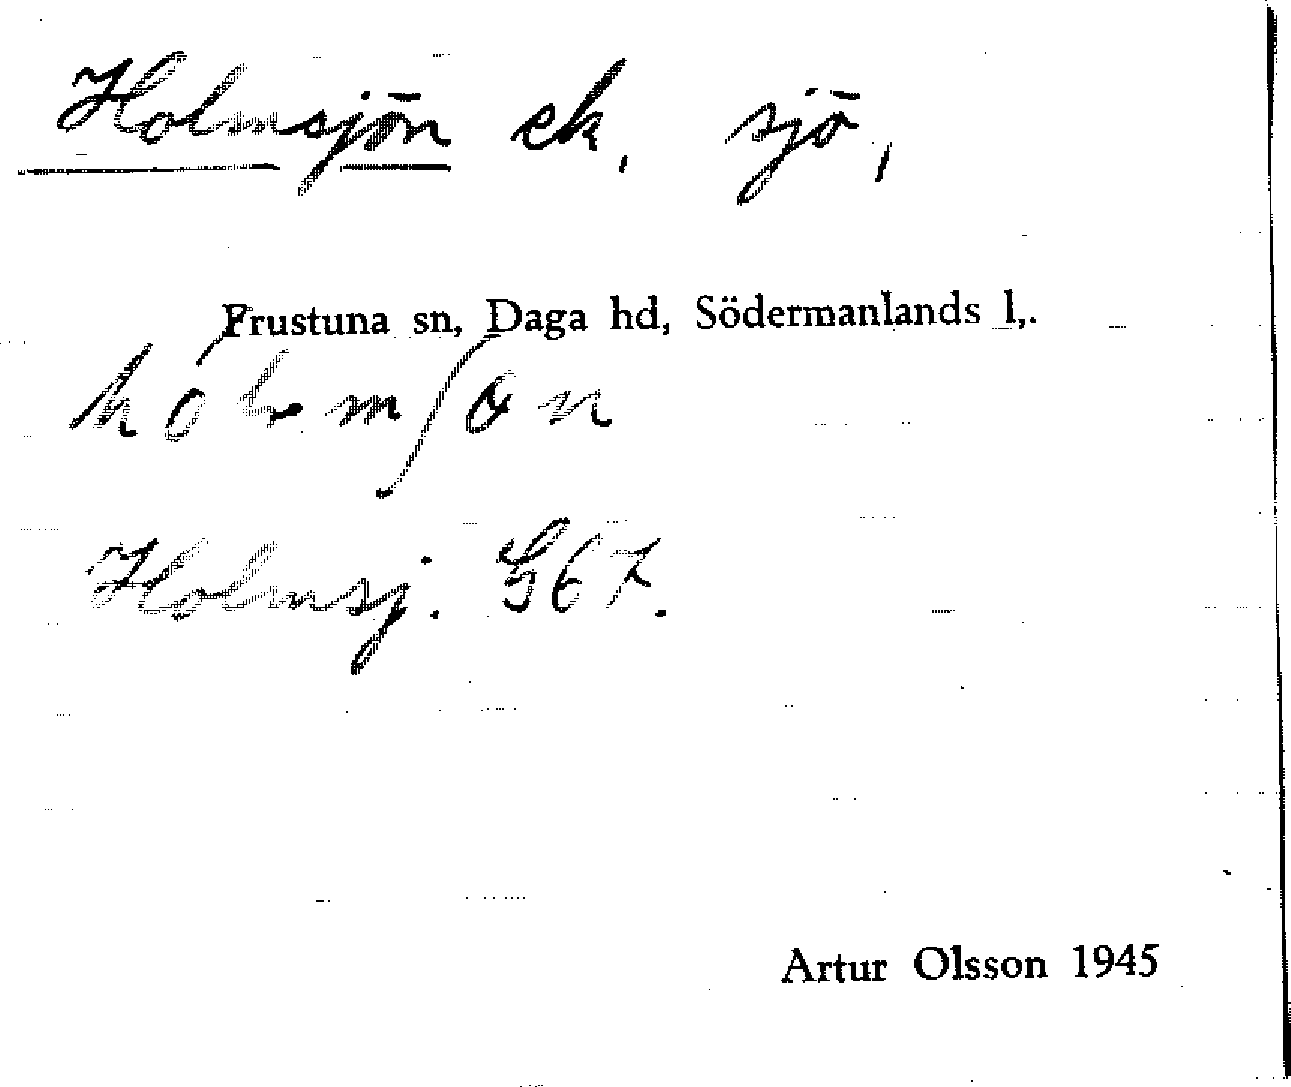 Holmsjön ek, sjö,
Frustuna sn, Daga hd, Södermanlands l,.
Holmsj. G67.
Artur Olsson 1945